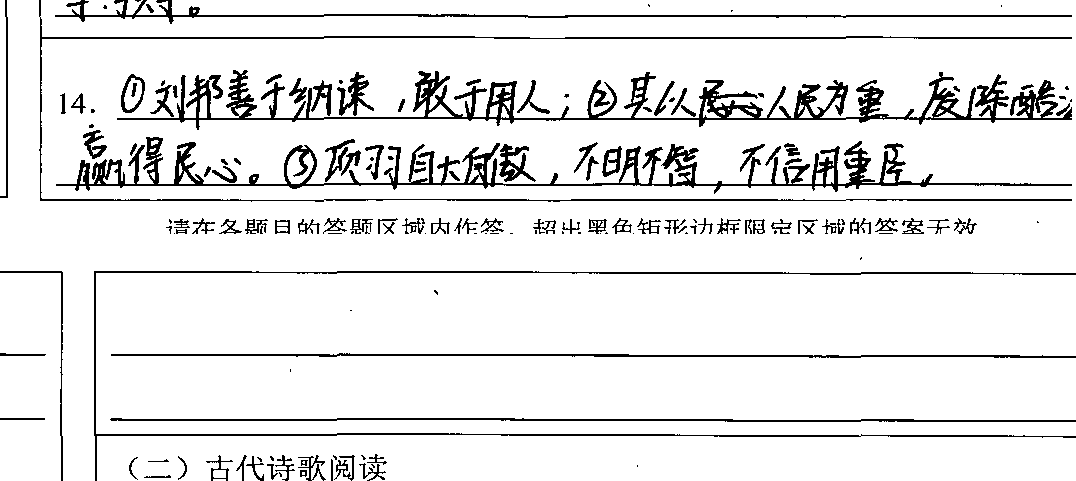 14. ①刘邦善于纳谏，敢于用人；②其以人民为重，废除酷
赢得民心。③项羽自大自傲，不明不智，不信用重臣。
请在各题目的答题区域内作答，超出黑色矩形边框限定区域的答案无效
（二）古代诗歌阅读